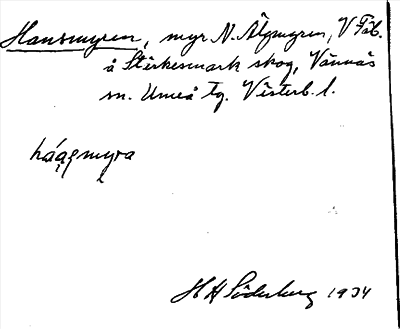 Hansmyren, myr N. Älgmyren, V Fäb.
å Stärkesmark skog, Vännäs
sn. Umeå tg. Västerb. l.
håạşmyra
H H Söderberg 1934